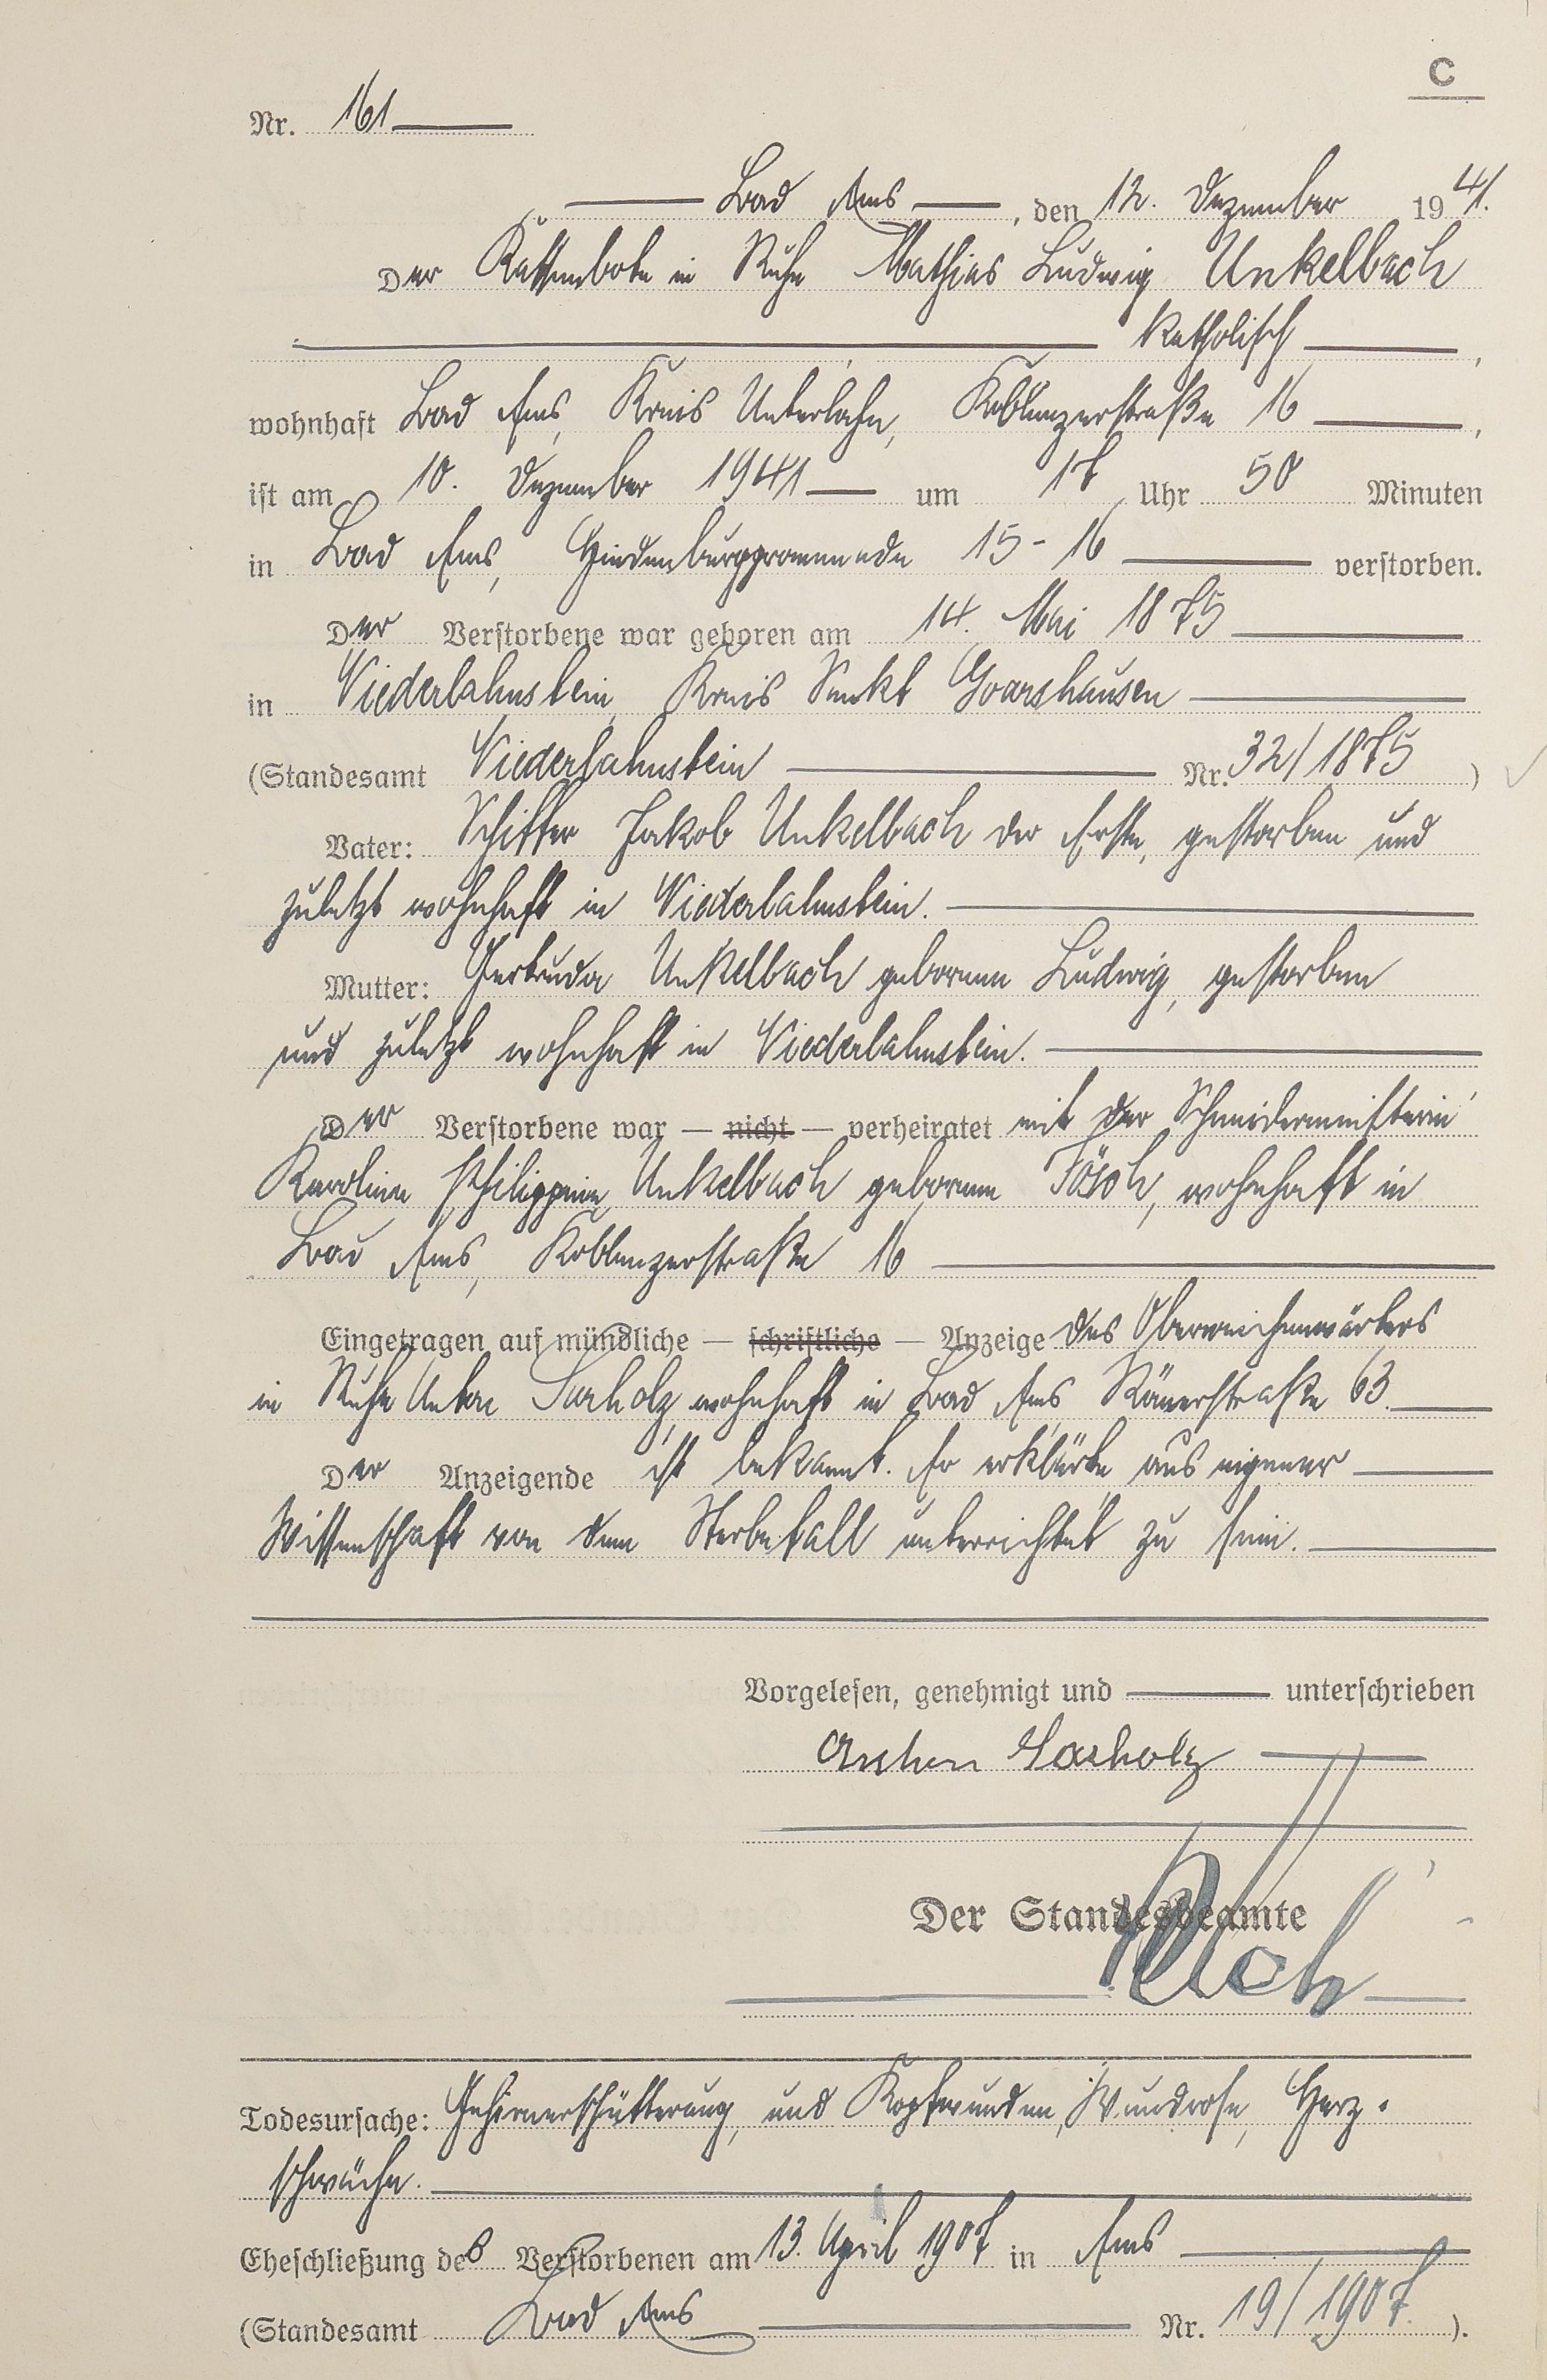 C
Nr. 161
Bad Ems, den 12. Dezember 1941.
Der Kassenbote in Ruhe Mathias Ludwig Unkelbach
katholisch,
wohnhaft Bad Ems, Kreis Unterlahn, Koblenzerstraße 16,
ist am 10. Dezember 1941 um 17 Uhr 50 Minuten
in Bad Ems, Hindenburgpromenade 15-16 verstorben.
Der Verstorbene war geboren am 14. Mai 1875
in Niederlahnstein, Kreis Sankt Goarshausen
(Standesamt Niederlahnstein Nr. 32/1875)
Vater: Schiffer Jakob Unkelbach der Erste, gestorben und
zuletzt wohnhaft in Niederlahnstein.
Mutter: Gertruda Unkelbach geborene Ludwig, gestorben
und zuletzt wohnhaft in Niederlahnstein.
Der Verstorbene war — nicht — verheiratet mit der Schneidermeisterin
Karoline Philippine Unkelbach geborene Fösch, wohnhaft in
Bad Ems, Koblenzerstraße 16
Eingetragen auf mündliche — schriftliche — Anzeige des Oberweichenwärters
in Ruhe Anton Sarholz, wohnhaft in Bad Ems, Römerstraße 63.
Der Anzeigende ist bekannt. Er erklärte aus eigener
Wissenschaft von dem Sterbefall unterrichtet zu sein.
Vorgelesen, genehmigt und unterschrieben
Anton Sarholz
Der Standesbeamte
Todesursache: Gehirnerschütterung, und Kopfwunden, Wundrose, Herz-
schwäche.
Eheschließung des Verstorbenen am 13. April 1907 in Ems
(Standesamt Bad Ems Nr. 19/1907).